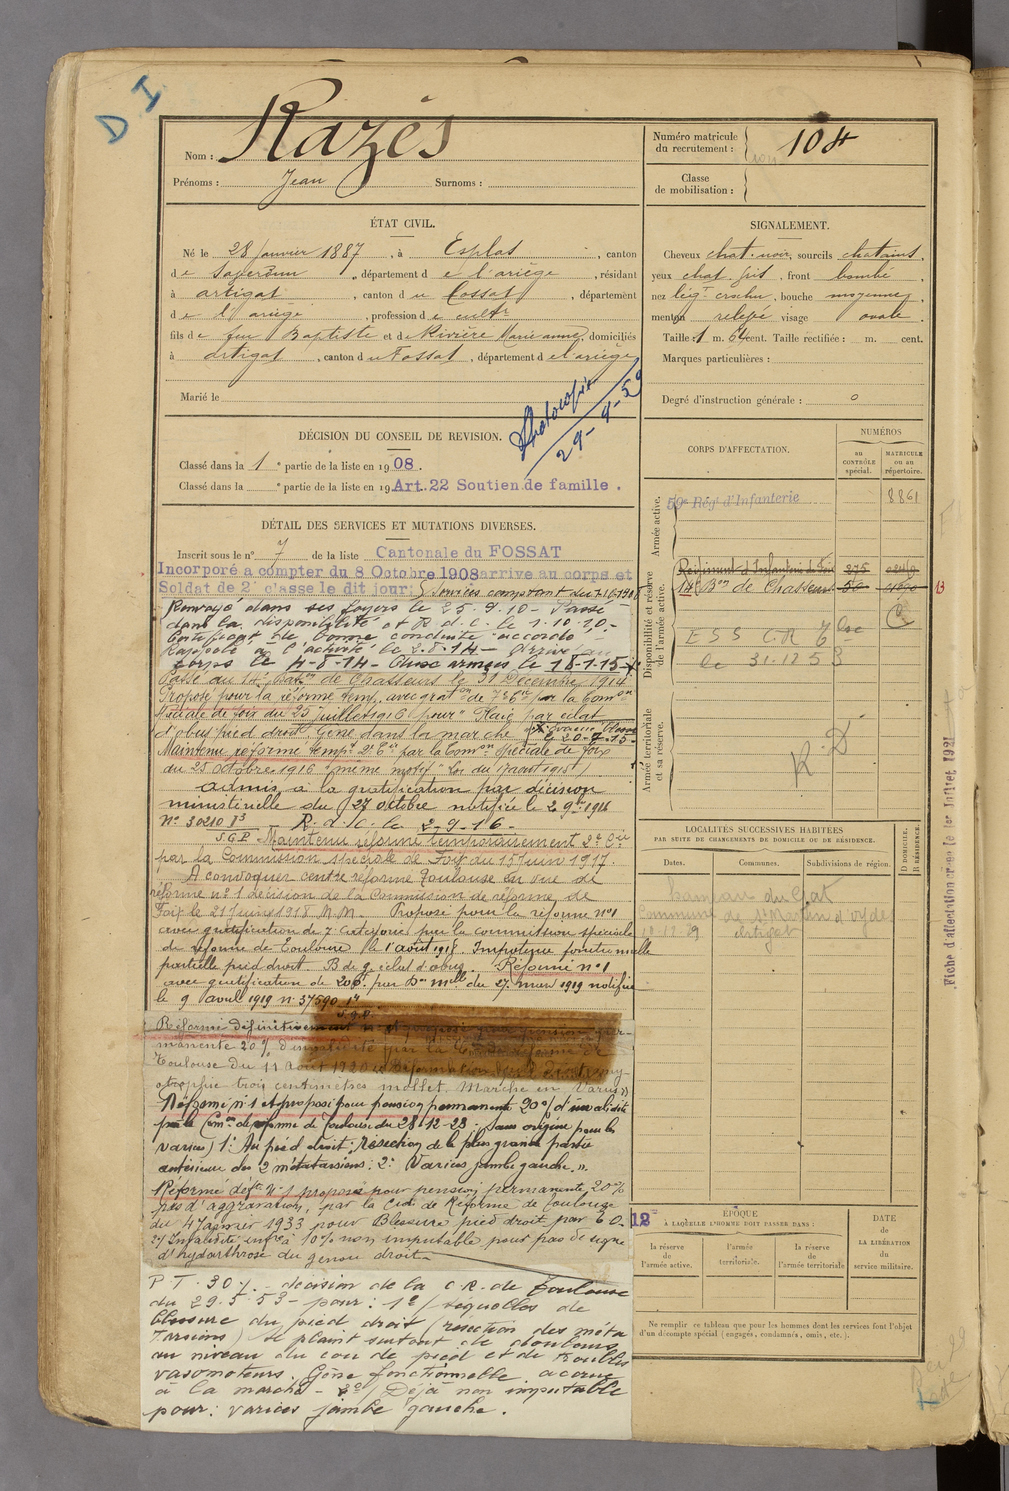 D I
Nom : Razès
Prénoms : Jean Surnoms :
Numéro matricule
du recrutement : 104
Classe
de mobilisation :
ÉTAT CIVIL.
Né le 28 Janvier 1887, à Esplas, canton
de Saverdun, département de l'ariège, résidant
à artigat, canton du Fossat, département
de l'ariège, profession de cultr
fils de feu Baptiste et de Rivière Marie anne, domiciliés
à artigat, canton du Fossat, département de l'ariège
Marié le
Photocopie
29-4-59
SIGNALEMENT.
Cheveux chat. noir, sourcils chatains,
yeux chat. gris, front bombé,
nez légt crochu, bouche moyenne,
menton relevé visage ovale.
Taille : 1 m. 64 cent. Taille rectifiée : m. cent.
Marques particulières :
Degré d'instruction générale : 0
DÉCISION DU CONSEIL DE REVISION.
Classé dans la 1e partie de la liste en 1908.
Classé dans la e partie de la liste en 19 Art.22 Soutien de famille.
DÉTAIL DES SERVICES ET MUTATIONS DIVERSES.
Inscrit sous le n° 7 de la liste Cantonale du FOSSAT
Incorporé a compter du 8 Octobre 1908 arrive au corps et
Soldat de 2e classe le dit jour. Services comptant du 1-10-1908
Renvoyé dans ses foyers le 25-9-10 - Passé
dans la disponibilité et R d.c. le 1.10.10.-
Certificat de bonne conduite accordé.-
Rappelé à l'activité le 2.8.14 - Arrivé au
corps le 4-8-14 - Aux armées le 18-1-15
Passé au 14e Baton de Chasseurs le 31 Décembre 1914
Proposé pour la réforme temp. avec graton de 7e Cie par la Comon
Spéciale de Foix du 25 juillet 1916 pour "Plaie par éclat
d'obus pied droit. Gêne dans la marche
le 20-7-15-
Maintenu réformé tempre 2e Cie par la Comon spéciale de Foix
du 25 octobre 1916 (même motif - Loi du 17 août 1915)
admis à la gratification par décision
ministérielle du 27 octobre notifiée le 2 9bre 1916
N° 30210 P3 R.d.C. le 2-9-16-
S.G.P. Maintenu réformé temporairement 2e Cie
par la Commission spéciale de Foix du 15 Juin 1917.
A convoquer centre réforme Toulouse en vue de
réforme n° 1 décision de la Commission de réforme de
Foix le 21 Juin 1918 M.M. Proposé pour la réforme n°1
avec gratification de 7e Catégorie par la commission spéciale
de réforme de Toulouse le 1 août 1918. Impotence fonctionnelle
partielle pied droit. B de g. éclat d'obus. Réformé n°1
avec gratification de 200f. par Don mlle du 27 mars 1919 notifiée
le 9 avril 1919 n° 37590 1re
S.G.P.
Réformé définitivement n° 1 et proposé pour pension per-
manente 20% d'invalidité par la Con de réforme de
Toulouse du 11 Août 1920
atrophie trois centimètres mollet. Marche en Varus»
Réformé n°1 et proposé pour pension permanente 20% d'invalidité
par la Comon de réforme de Toulouse du 28-12-23: (sans origine pour les
varices) 1° Au pied droit; résection de la plus grande partie
antérieure des 2 métatarsiens: 2° Varices jambe gauche.».
Réformé défve N°1 proposé pour pension permanente 20%
pas d'aggravation, par la Cion de Réforme de Toulouse
du 4 Janvier 1933 pour Blessure pied droit par E.O.
2°/ Invalidité infre à 10% non imputable pour pas de signe
d'hydarthrose du genou droit.
P T. 30%. - décision de la C.R. de Toulouse
du 29.5.53 - pour : 1°/ séquelles de
blessure du pied droit (résection des méta
tarsiens) se plaint surtout de douleurs
au niveau du cou de pied et de troubles
vasomoteurs. Gêne fonctionnelle accrue
à la marche - 2°/ Déjà non imputable
pour : varices jambe gauche.
CORPS D'AFFECTATION.
NUMÉROS
au
CONTRÔLE
spécial.
MATRICULE
ou au
répertoire.
Armée active.
59e Rég. d'Infanterie 8861
Disponibilité et réserve
de l'armée active.
Régiment d'Infanterie de Foix 275
14e Bon de Chasseurs
13
E S S C.R
le 31.12.53
Armée territoriale
et sa réserve.
R.D
LOCALITÉS SUCCESSIVES HABITÉES
PAR SUITE DE CHANGEMENTS DE DOMICILE OU DE RÉSIDENCE.
Dates. Communes. Subdivisions de région.
D DOMICILE.
R RÉSIDENCE.
hameau du Gat
Commune de St Martin d'oydes
artigat
Fiche d'affectation rose le 1er Juillet 1921
12
ÉPOQUE
À LAQUELLE L'HOMME DOIT PASSER DANS :
la réserve
de l'armée active.
l'armée
territoriale.
la réserve
de l'armée territoriale
DATE
de
LA LIBÉRATION
du
service militaire.
Ne remplir ce tableau que pour les hommes dont les services font l'objet
d'un décompte spécial (engagés, condamnés, omis, etc.).